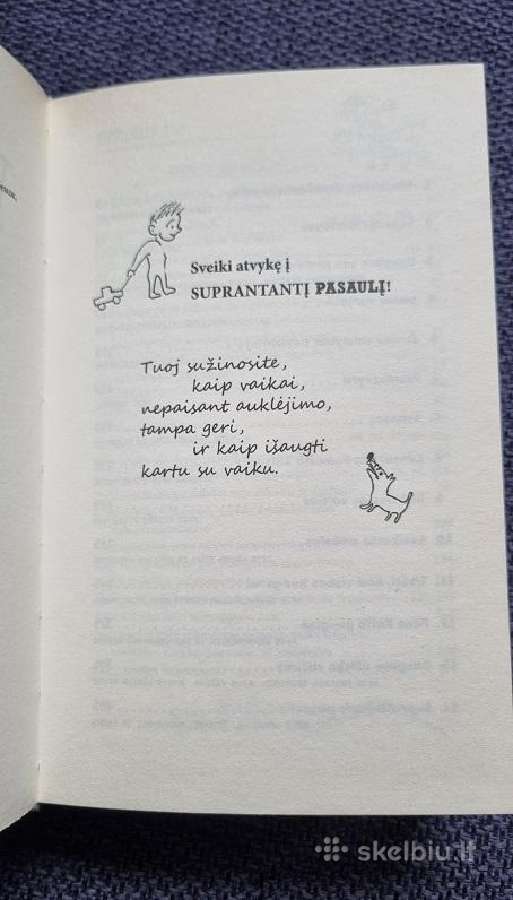 Sveiki atvykę į
SUPRANTANTĮ PASAULĮ!
Tuoj sužinosite,
kaip vaikai,
nepaisant auklėjimo,
tampa geri,
ir kaip išaugti
kartu su vaiku.
skelbiu.lt